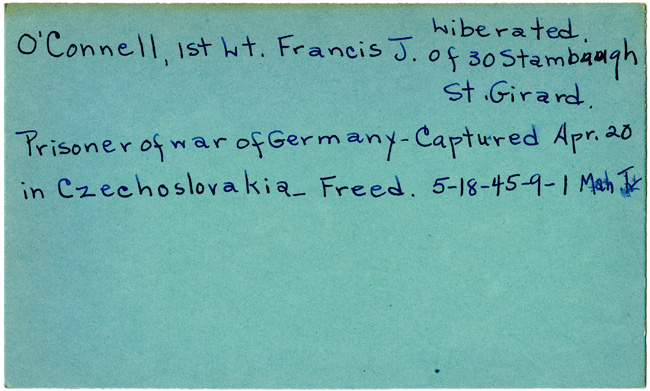 Liberated.
O'Connell, 1st Lt. Francis J. of 30 Stambaugh
St. Girard.
Prisoner of war of Germany - Captured Apr. 20
in Czechoslovakia - Freed. 5-18-45-9-1 Mah